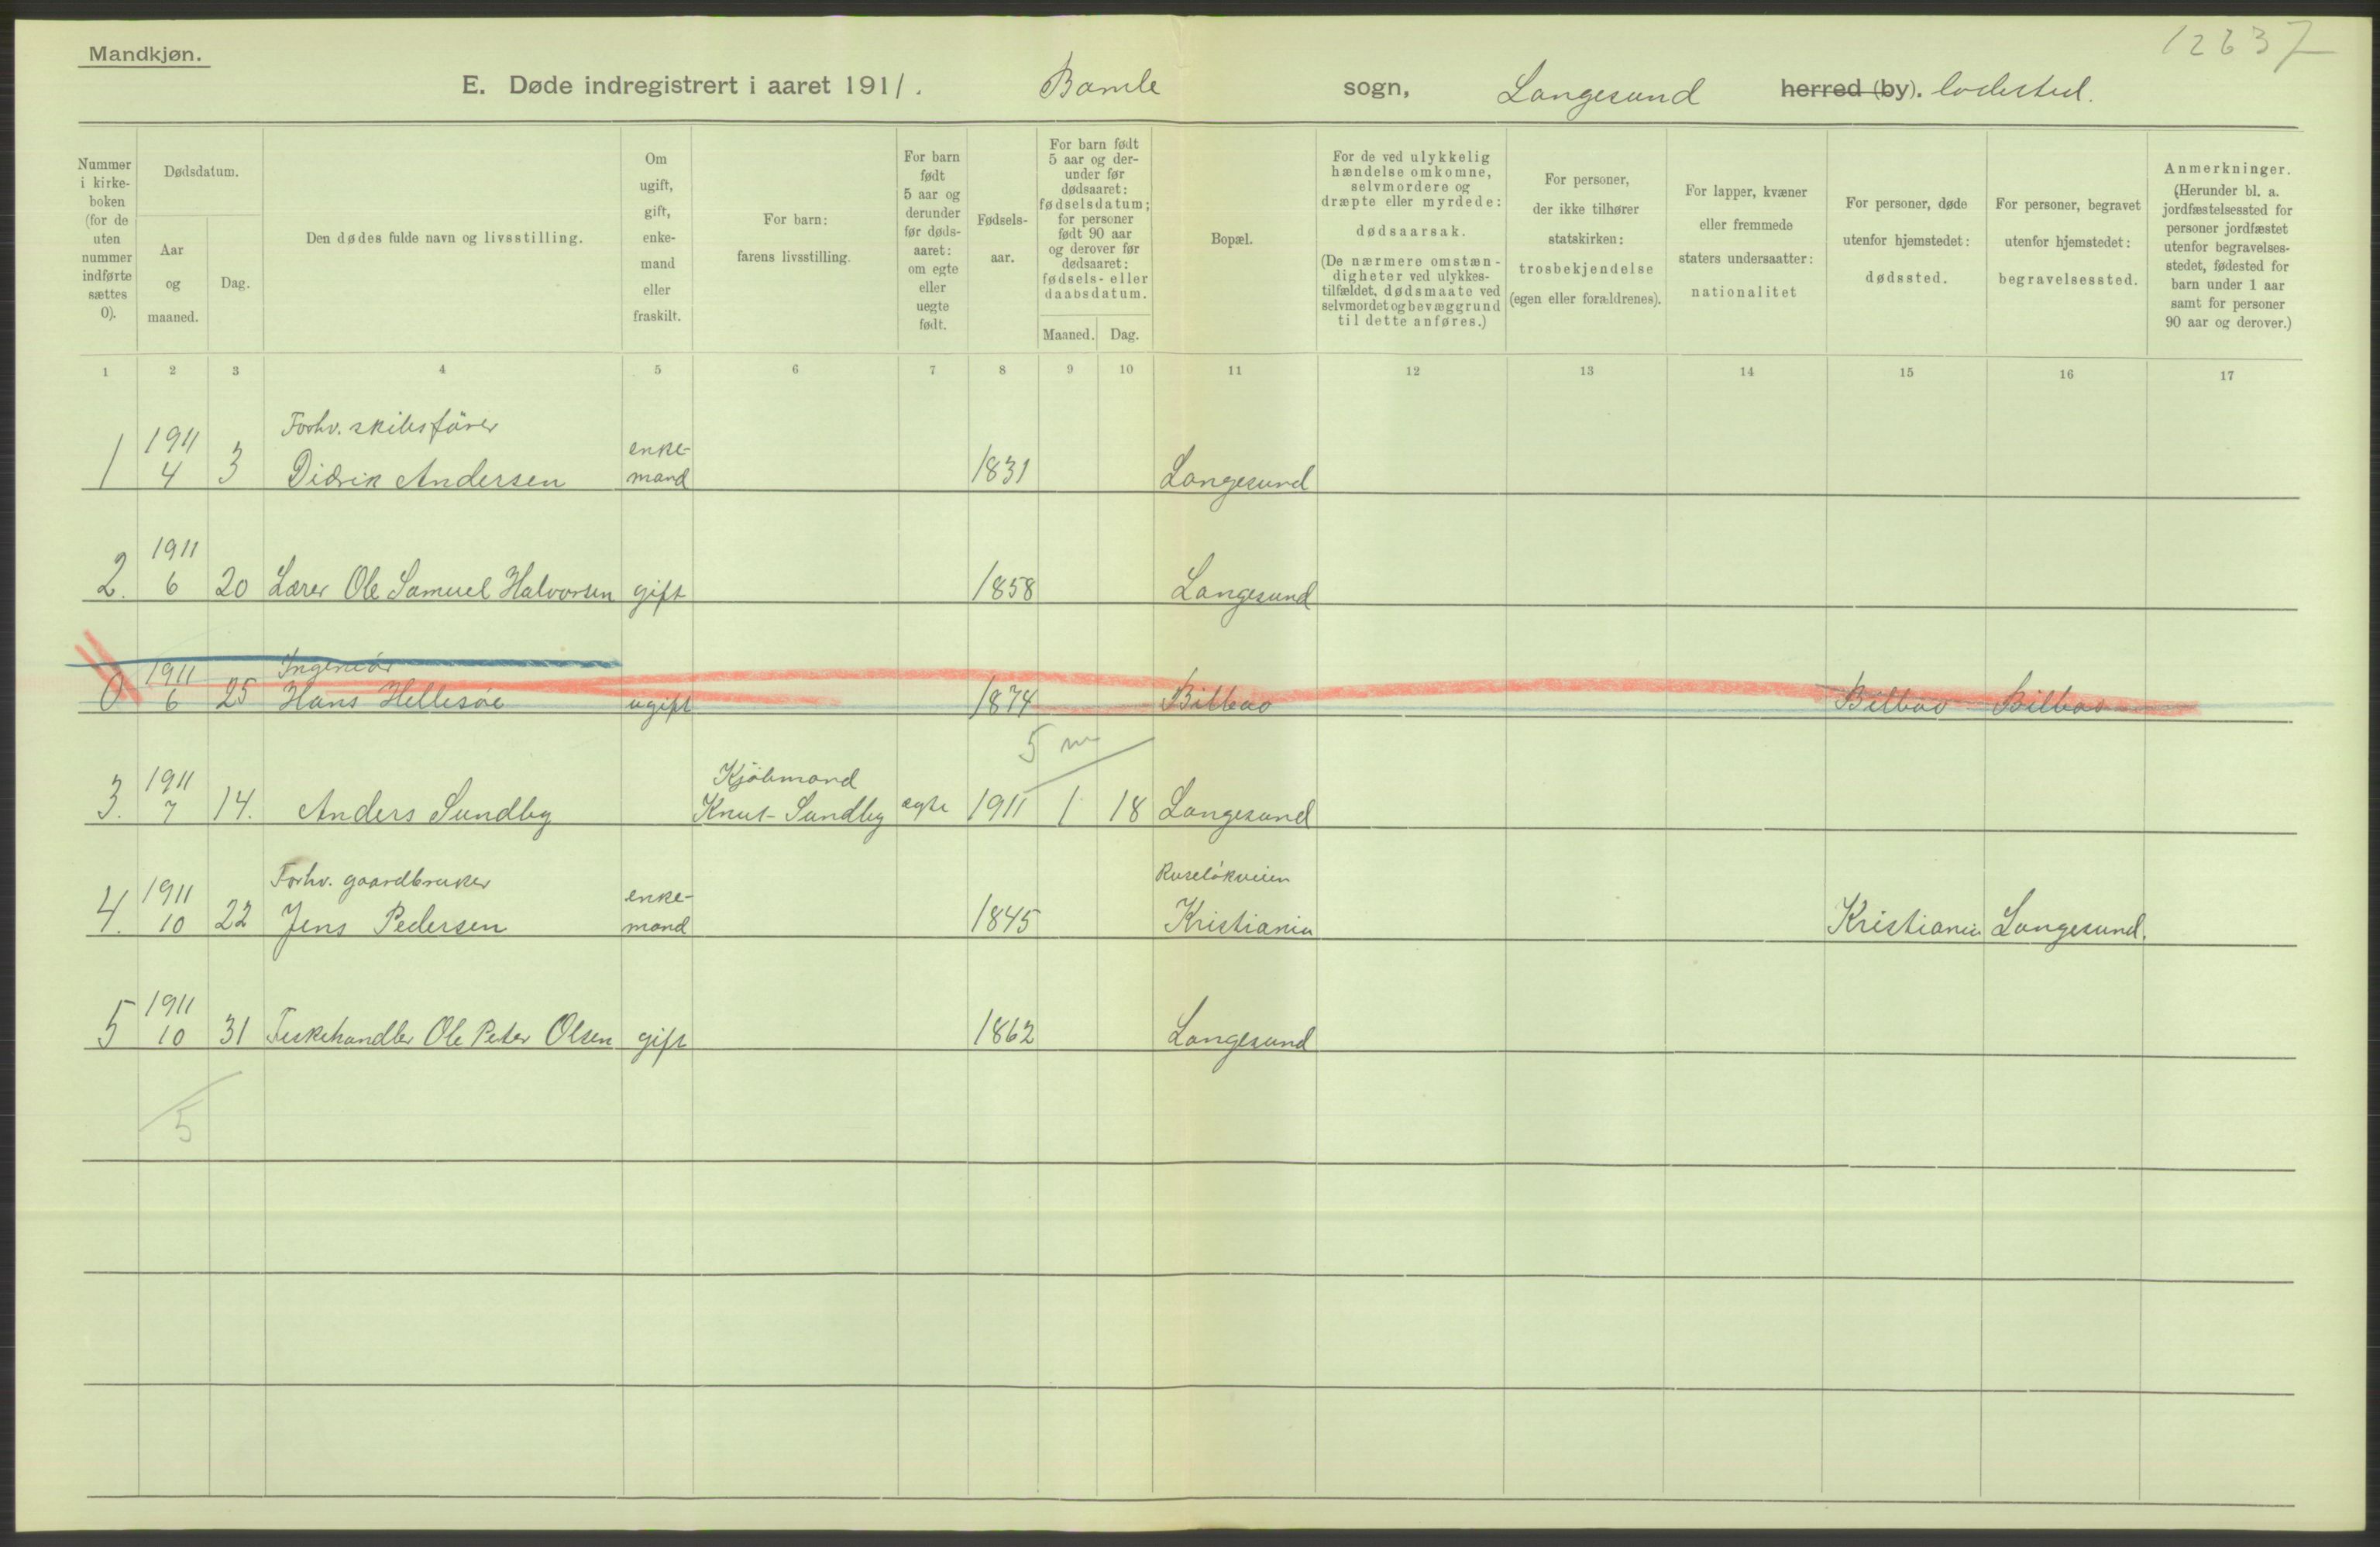 12637
Mandkjøn.
E. Døde indregistrert i aaret 1911. Bamle sogn, Langesund herred (by). ladested.
Nummer i kirke-boken (for de uten nummer indførte sættes 0).
Dødsdatum.
Aar og maaned.
Dag.
Den dødes fulde navn og livsstilling.
Om ugift, gift, enke-mand eller fraskilt.
For barn: farens livsstilling.
For barn født 5 aar og derunder før døds-aaret: om egte eller uegte født.
Fødsels-aar.
For barn født 5 aar og der-under før dødsaaret: fødselsdatum; for personer født 90 aar og derover før dødsaaret: fødsels- eller daabsdatum.
Maaned. Dag.
Bopæl.
For de ved ulykkelig hændelse omkomne, selvmordere og dræpte eller myrdede: dødsaarsak. (De nærmere omstæn-digheter ved ulykkes-tilfældet, dødsmaate ved selvmordet og bevæggrund til dette anføres.)
For personer, der ikke tilhører statskirken: trosbekjendelse (egen eller forældrenes).
For lapper, kvæner eller fremmede staters undersaatter: nationalitet
For personer, døde utenfor hjemstedet: dødssted.
For personer, begravet utenfor hjemstedet: begravelsessted.
Anmerkninger. (Herunder bl. a. jordfæstelsessted for personer jordfæstet utenfor begravelses-stedet, fødested for barn under 1 aar samt for personer 90 aar og derover.)
1 2 3 4 5 6 7 8 9 10 11 12 13 14 15 16 17
1911 Forhv. skibsfører enke-
1 4 3 Didrik Andersen mand 1831 Langesund
1911
2. 6 20 Lærer Ole Samuel Halvorsen gift 1858 Langesund
1911 Ingeniör
0 6 25 Hans Hellesöe ugift 1874 Bilbao Bilbao Bilbao
5 m
1911 Kjöbmand
3. 7 14. Anders Sundby Knut Sundby egte 1911 1 18 Langesund
1911 Forhv. gaardbruker enke- Ruselökveien
4. 10 22 Jens Pedersen mand 1845 Kristiania Kristiania Langesund.
1911
5 10 31 Fiskehandler Ole Peter Olsen gift 1862 Langesund
5